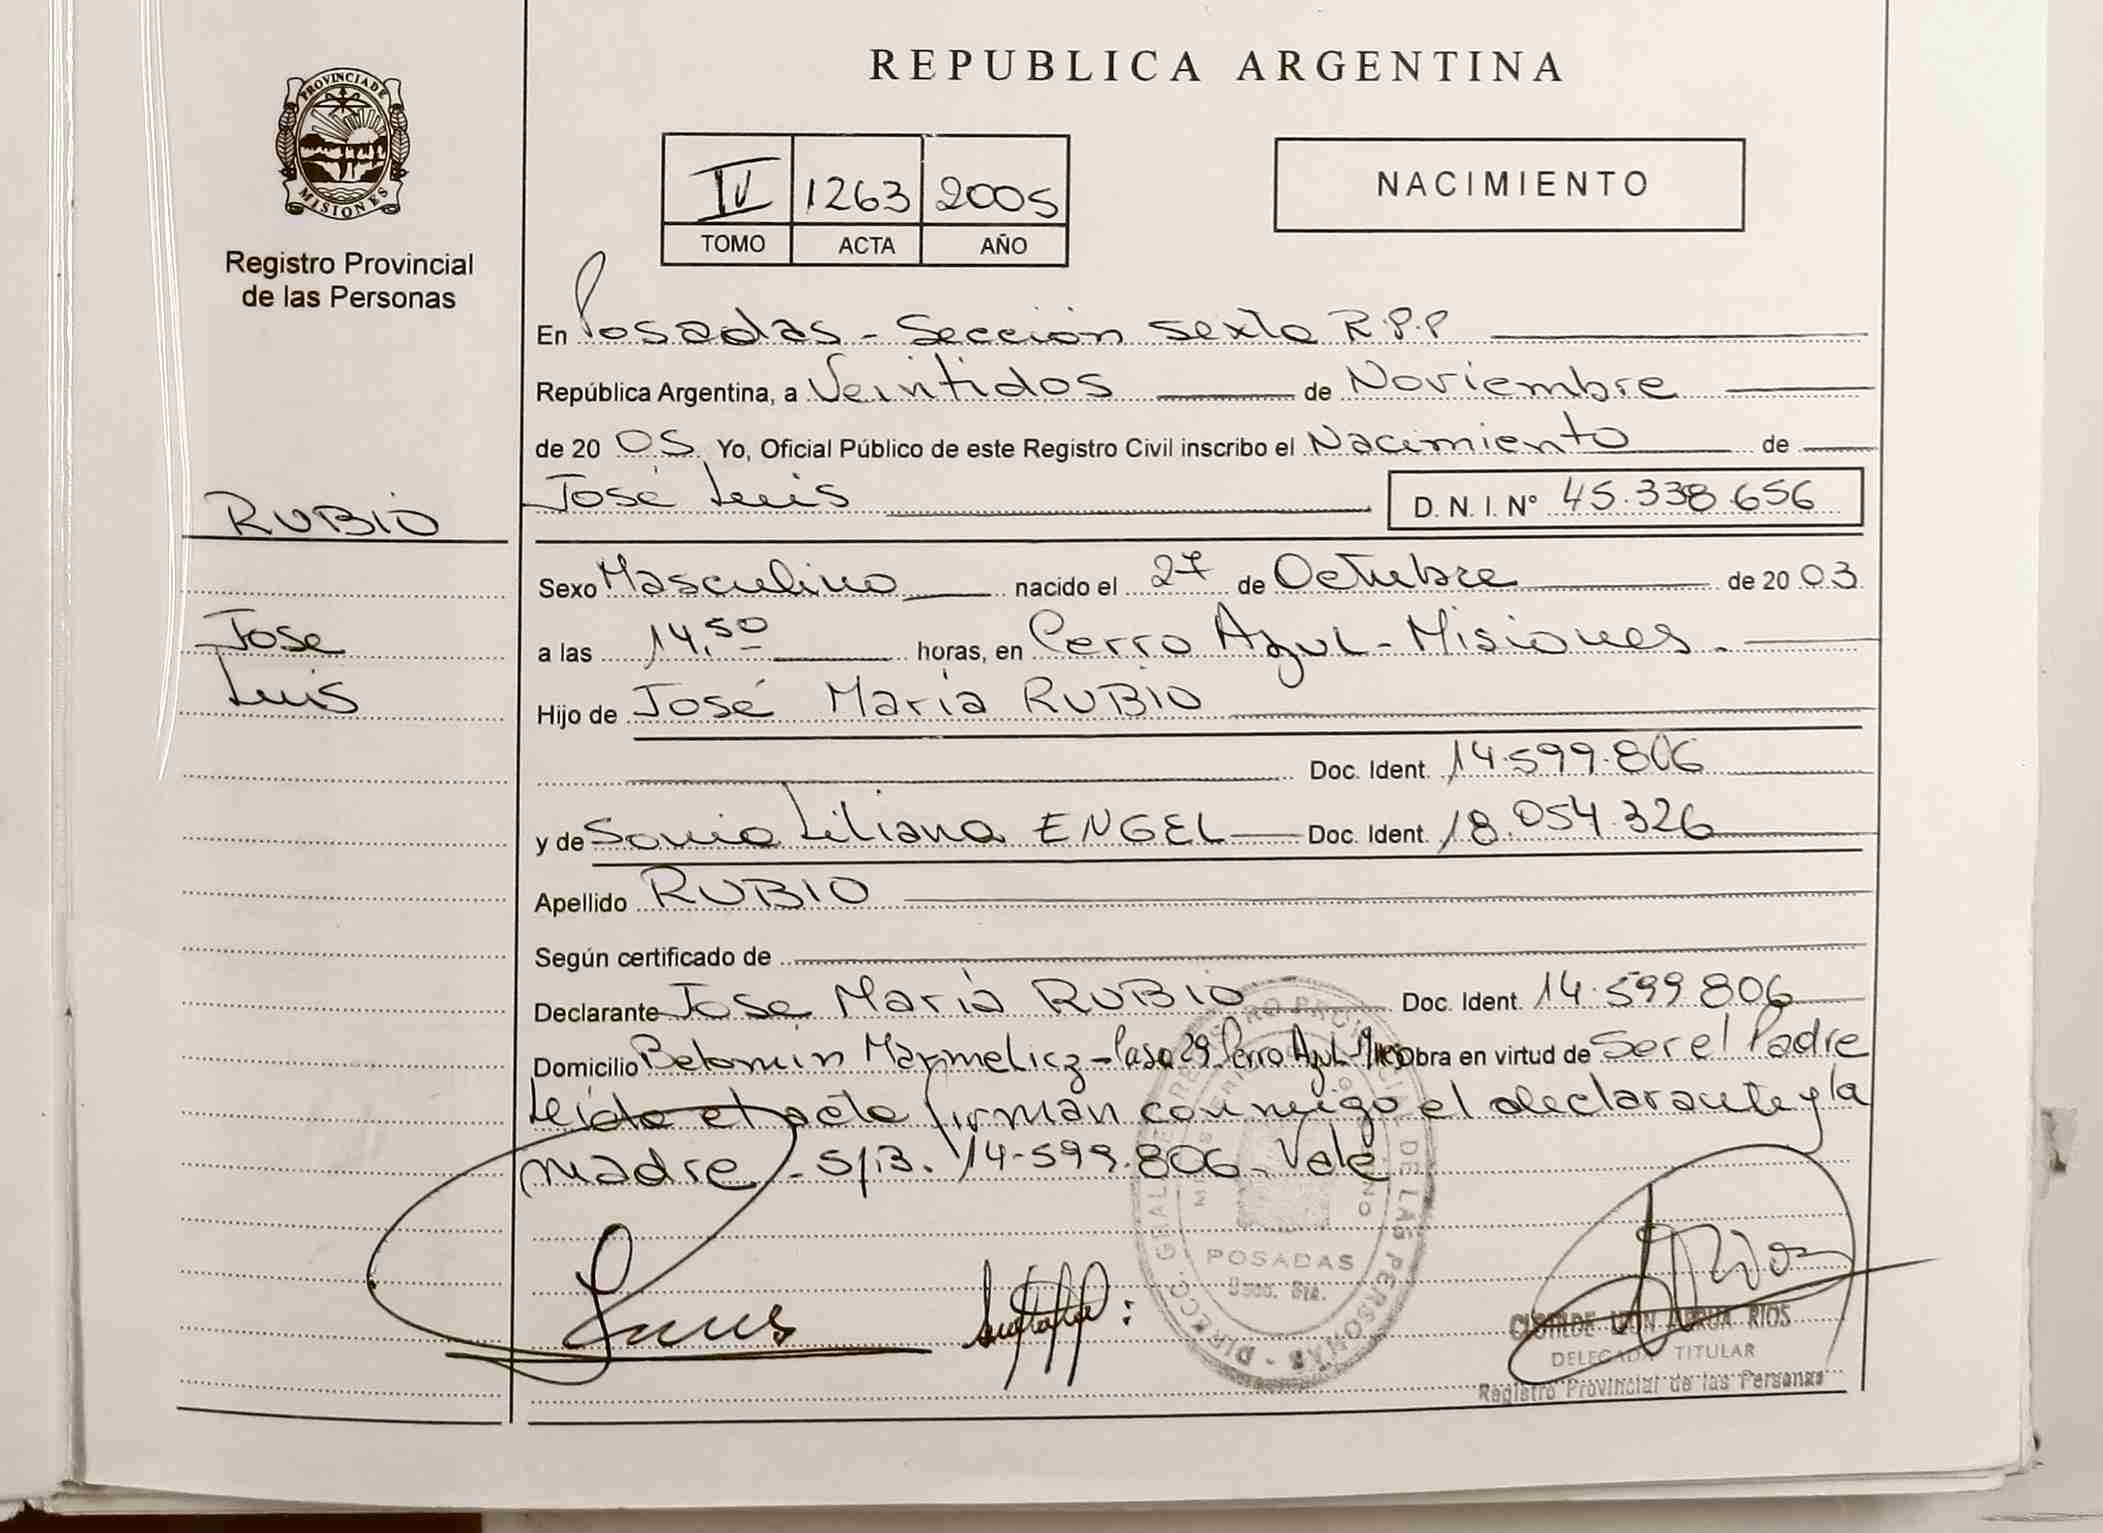 REPUBLICA ARGENTINA
PROVINCIA DE MISIONES
Registro Provincial
de las Personas
IV 1263 2005
TOMO ACTA AÑO
NACIMIENTO
En Posadas - Sección Sexta R.P.P
República Argentina, a Veintidos de Noviembre
de 20 05 Yo, Oficial Público de este Registro Civil inscribo el Nacimiento de
José Luis D. N. I. Nº 45.338.656
RUBIO
Sexo Masculino nacido el 27 de Octubre de 20 03
Jose
a las 14,50 horas, en Cerro Azul - Misiones.
Luis
Hijo de José María RUBIO
Doc. Ident. 14.599.806
y de Sonia Liliana ENGEL Doc. Ident. 18.054.326
Apellido RUBIO
Según certificado de
Declarante José María RUBIO Doc. Ident. 14.599.806
Domicilio - Casa 29. Cerro Azul - Obra en virtud de Ser el Padre
Leída el acta firman conmigo el declarante y la
madre - S/B. 14-599.806 - Vale
DIRECC. GENERAL DE REGISTRO PROVINCIAL DE LAS PERSONAS
POSADAS
Secc. 6ta.
RIOS
DELEGADA TITULAR
Registro Provincial de las Personas